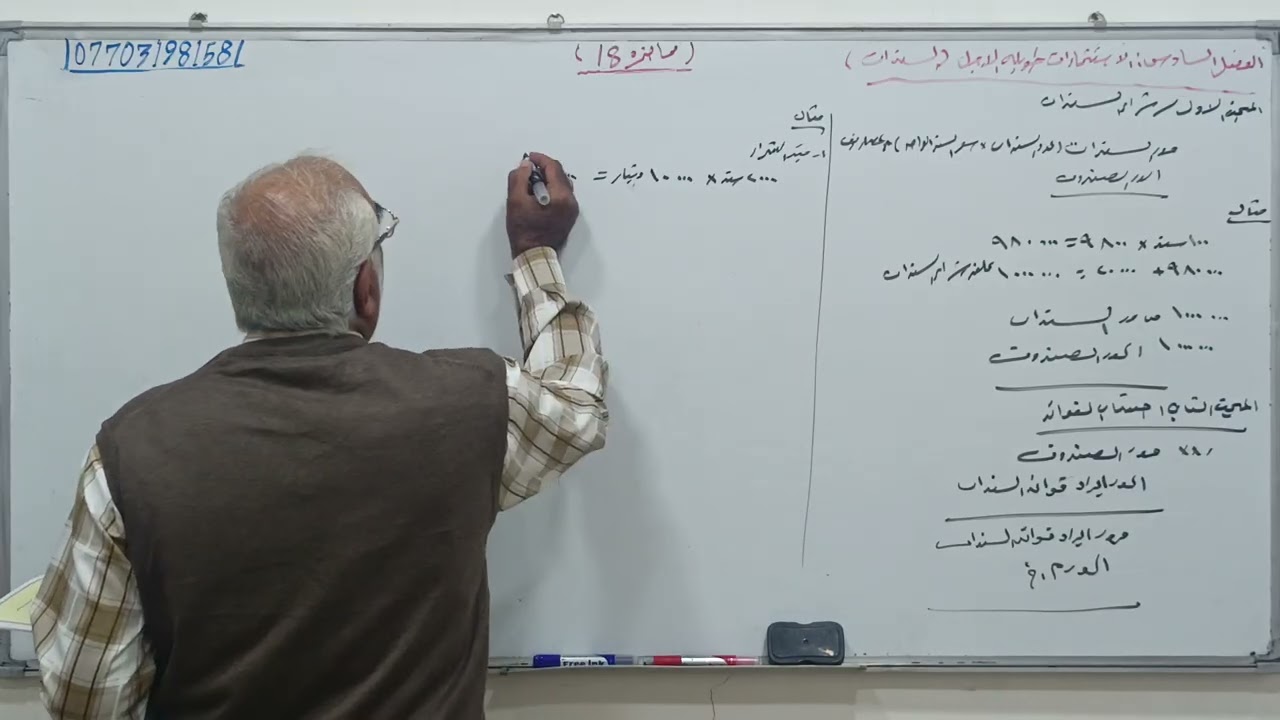 الفصل السادس: الاستثمارات طويلة الاجل (السندات)
(محاضرة 18)
07703198158
المبحث الاول / شراء السندات
حـ/ السندات (عدد السندات × سعر السند الواحد) + المصاريف
الى حـ/ الصندوق
مثال
١٠٠ سند × ٩٨٠٠ = ٩٨٠٠٠٠
٩٨٠٠٠٠ + ٢٠٠٠٠ = ١٠٠٠٠٠٠ كلفة شراء السندات
١٠٠٠٠٠٠ من حـ/ السندات
١٠٠٠٠٠٠ الى حـ/ الصندوق
المبحث الثاني / احتساب الفوائد
×× من حـ/ الصندوق
الى حـ/ ايراد فوائد السندات
من حـ/ ايراد فوائد السندات
الى حـ/ م.خ
مثال
١ـ مبلغ القرار
٢٠٠٠ سند × ١٠٠٠٠ دينار =
Free Ink